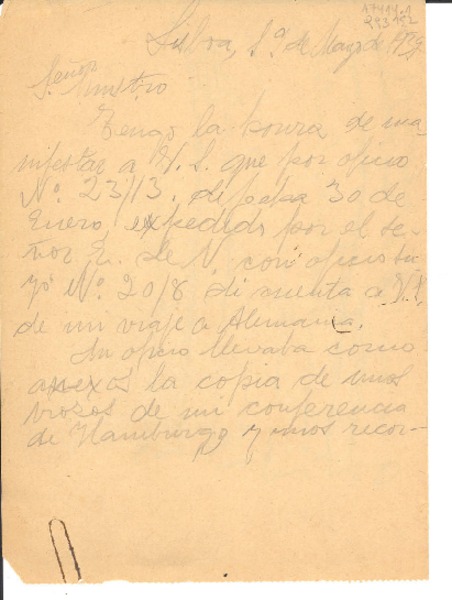 Lisboa, 1º de Mayo de 1939
Señor
Ministro
Tengo la honra de ma-
nifestar a V. S. que por oficio
Nº. 23/13. de fecha 30 de
Enero, expedido por el se-
ñor E. de N. con oficio su-
yo Nº. 20/8 di cuenta a V. S.
de un viaje a Alemania.
Mi oficio llevaba como
anexos la copia de unos
trozos de mi conferencia
de Hamburgo y unos recor-